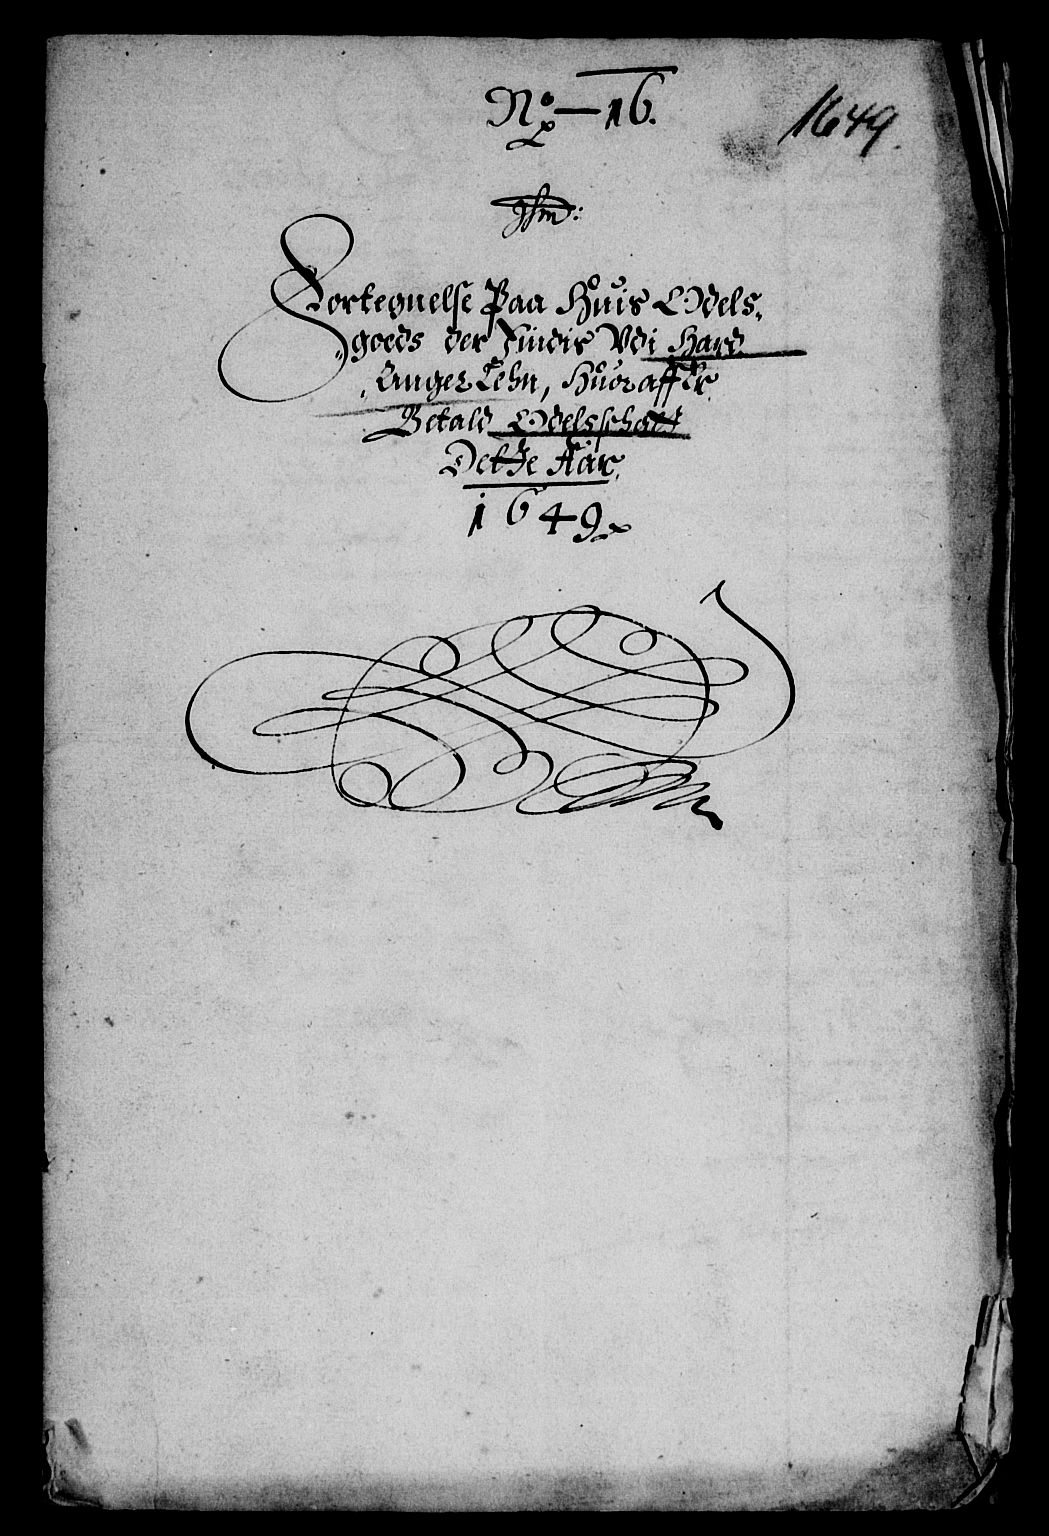 No. 16.
1649.
Jhm:
Fortegnelse Paa Huis Odels,
goeds der findis Udi Hard
Anger Lehn, Huoraff Er
Betald Odelsschatt
Dette Aar,
1649